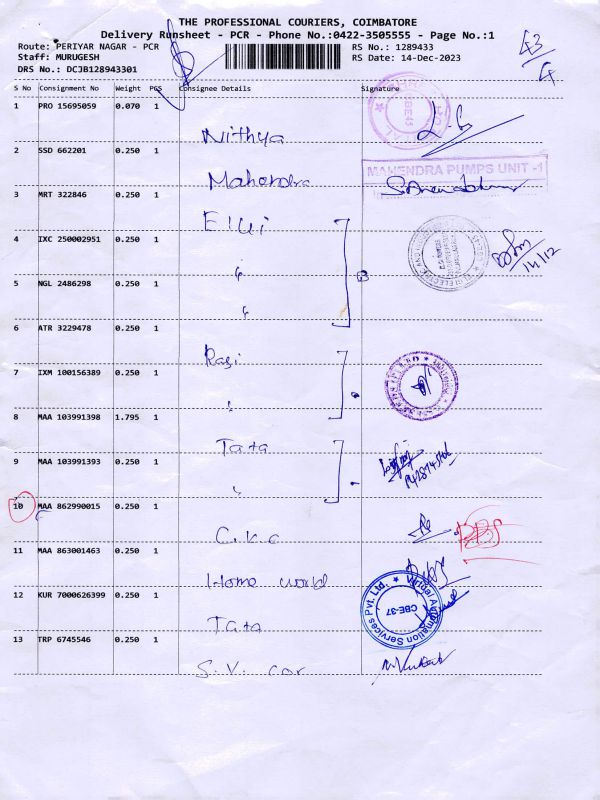 THE PROFESSIONAL COURIERS, COIMBATORE
Delivery Runsheet - PCR - Phone No.:0422-3505555 - Page No.:1
Route: PERIYAR NAGAR - PCR
RS No.: 1289433
43
Staff: MURUGESH
RS Date: 14-Dec-2023
4
DRS No.: DCJB128943301
S No Consignment No Weight PGS Consignee Details Signature
1 PRO 15695059 0.070 1
Nithya
2 SSD 662201 0.250 1
Mahendra
MAHENDRA PUMPS UNIT -1
3 MRT 322846 0.250 1
Elgi
4 IXC 250002951 0.250 1
"
14/12
5 NGL 2486298 0.250 1
"
6 ATR 3229478 0.250 1
Rasi
7 IXM 100156389 0.250 1
"
8 MAA 103991398 1.795 1
Tata
9 MAA 103991393 0.250 1
"
10 MAA 862990015 0.250 1
C.k.c
11 MAA 863001463 0.250 1
Home world
12 KUR 7000626399 0.250 1
Tata
Virtual Automation Services Pvt. Ltd.
CBE-37
13 TRP 6745546 0.250 1
S.V. cor